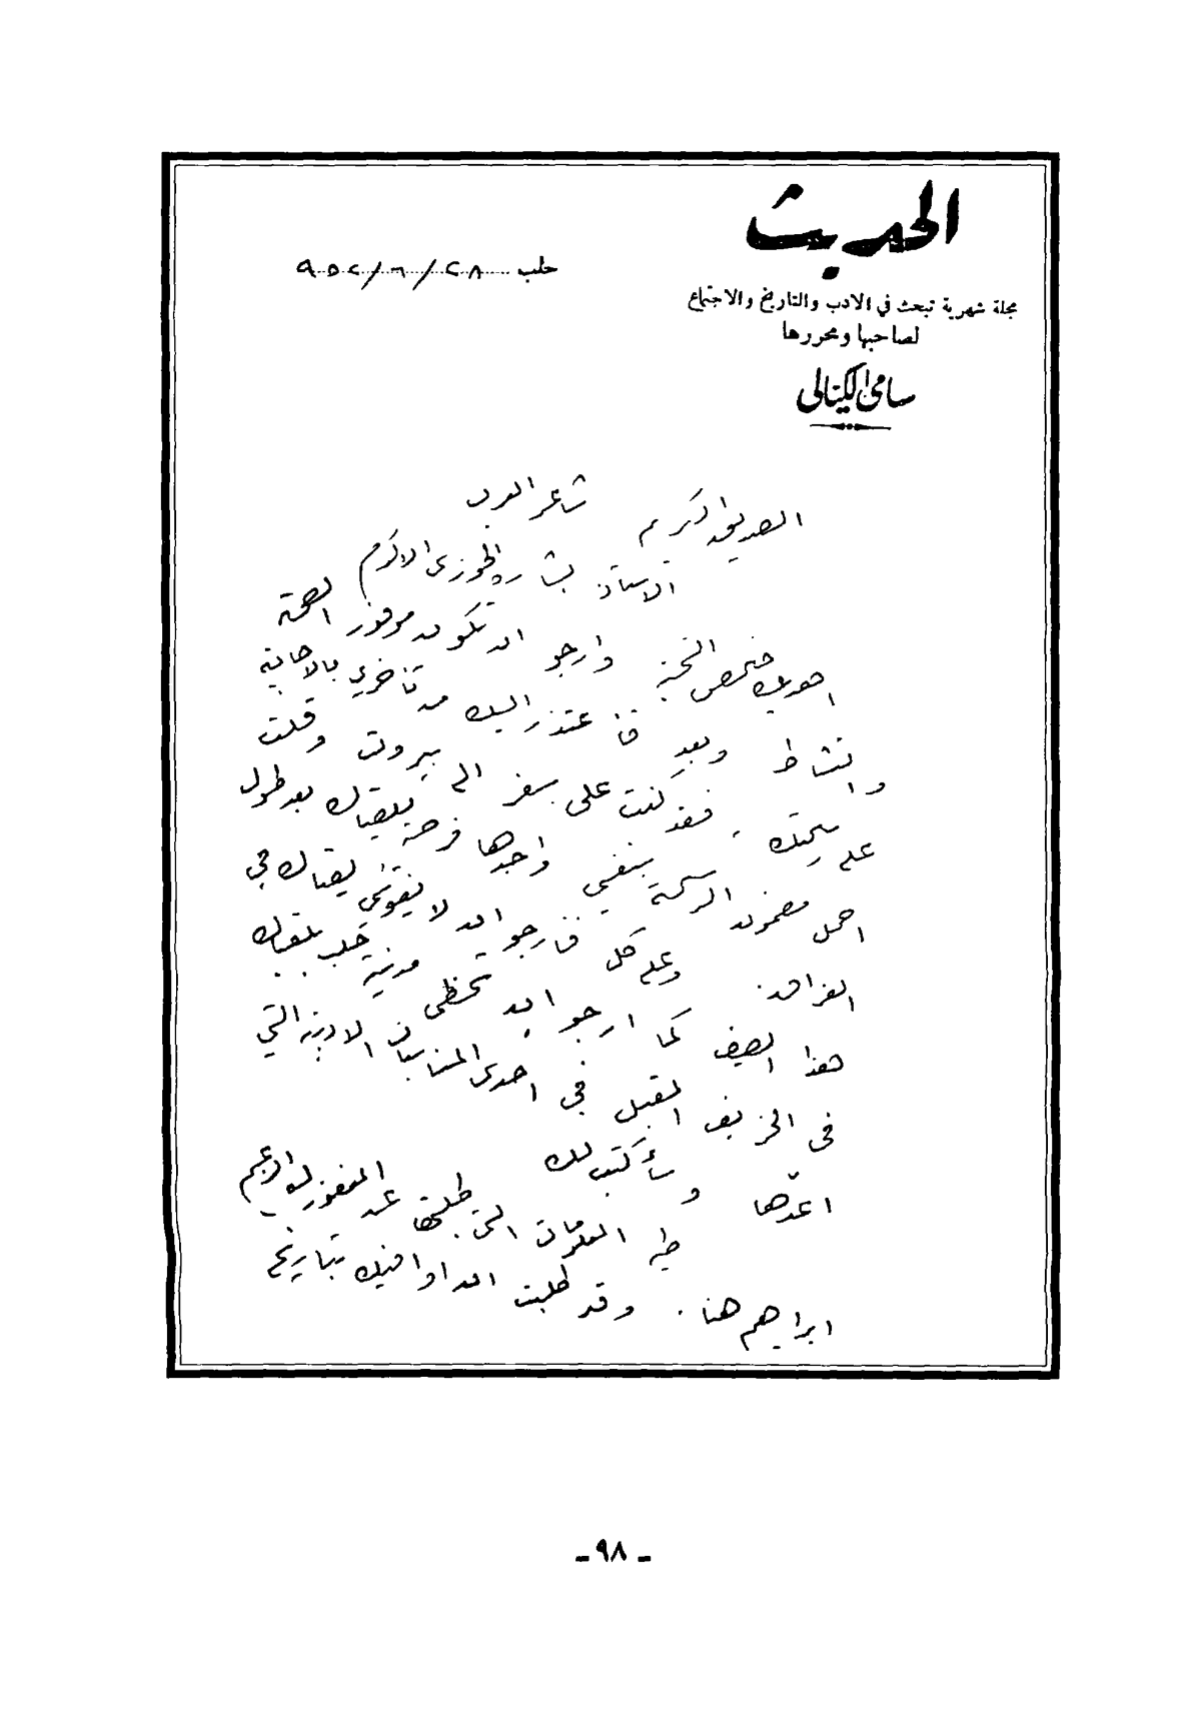 الحديث
حلب ٢٨/٦/٩٥٢
مجلة شهرية تبحث في الادب والتاريخ والاجتماع
لصاحبها ومحررها
سامي الكيالي
الصديق الكريم شاعر العرب
الاستاذ بشاره الخوري الاكرم
اهديك خالص التحية وارجو ان تكون موفور الصحة
والنشاط وبعد فاعتذر اليك من تأخري بالاجابة
على رسالتك. فقد كنت على سفر الى بيروت وقلت
احمل مضمون الرسالة بنفسي واجدها فرصة للقياك بعد طول
الفراق. وعلى كل فارجو ان لا يفوتني لقياك في
هذا الصيف كما ارجو ان تحظى مدينة حلب بلقياك
في الخريف المقبل في احدى المناسبات الادبية التي
اعدّها وسأكتب لك
طيه المعلومات التي طلبتها عن المغفور له الزعيم
ابراهيم هنانو. وقد طلبت ان اوافيك بتاريخ
- ٩٨ -